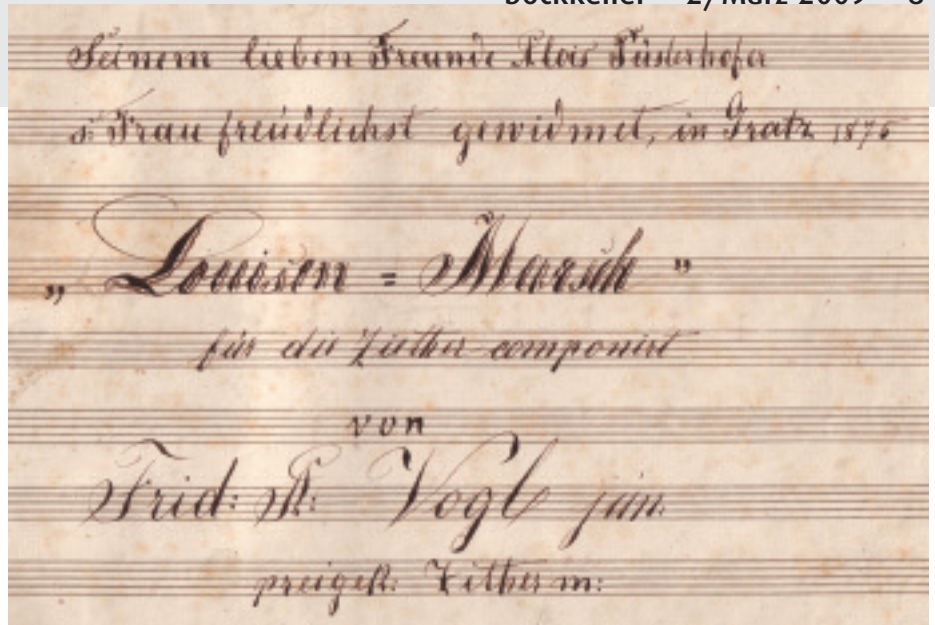 Bockkeller – 2/März 2009 – 8
Seinem lieben Freunde Alois Füsterhofer
s: Frau freudlichst gewidmet, in Gratz 1875
„Louisen = Marsch"
für die Zither componirt
von
Frid: R: Vogl jun.
preigek: Zitherm: